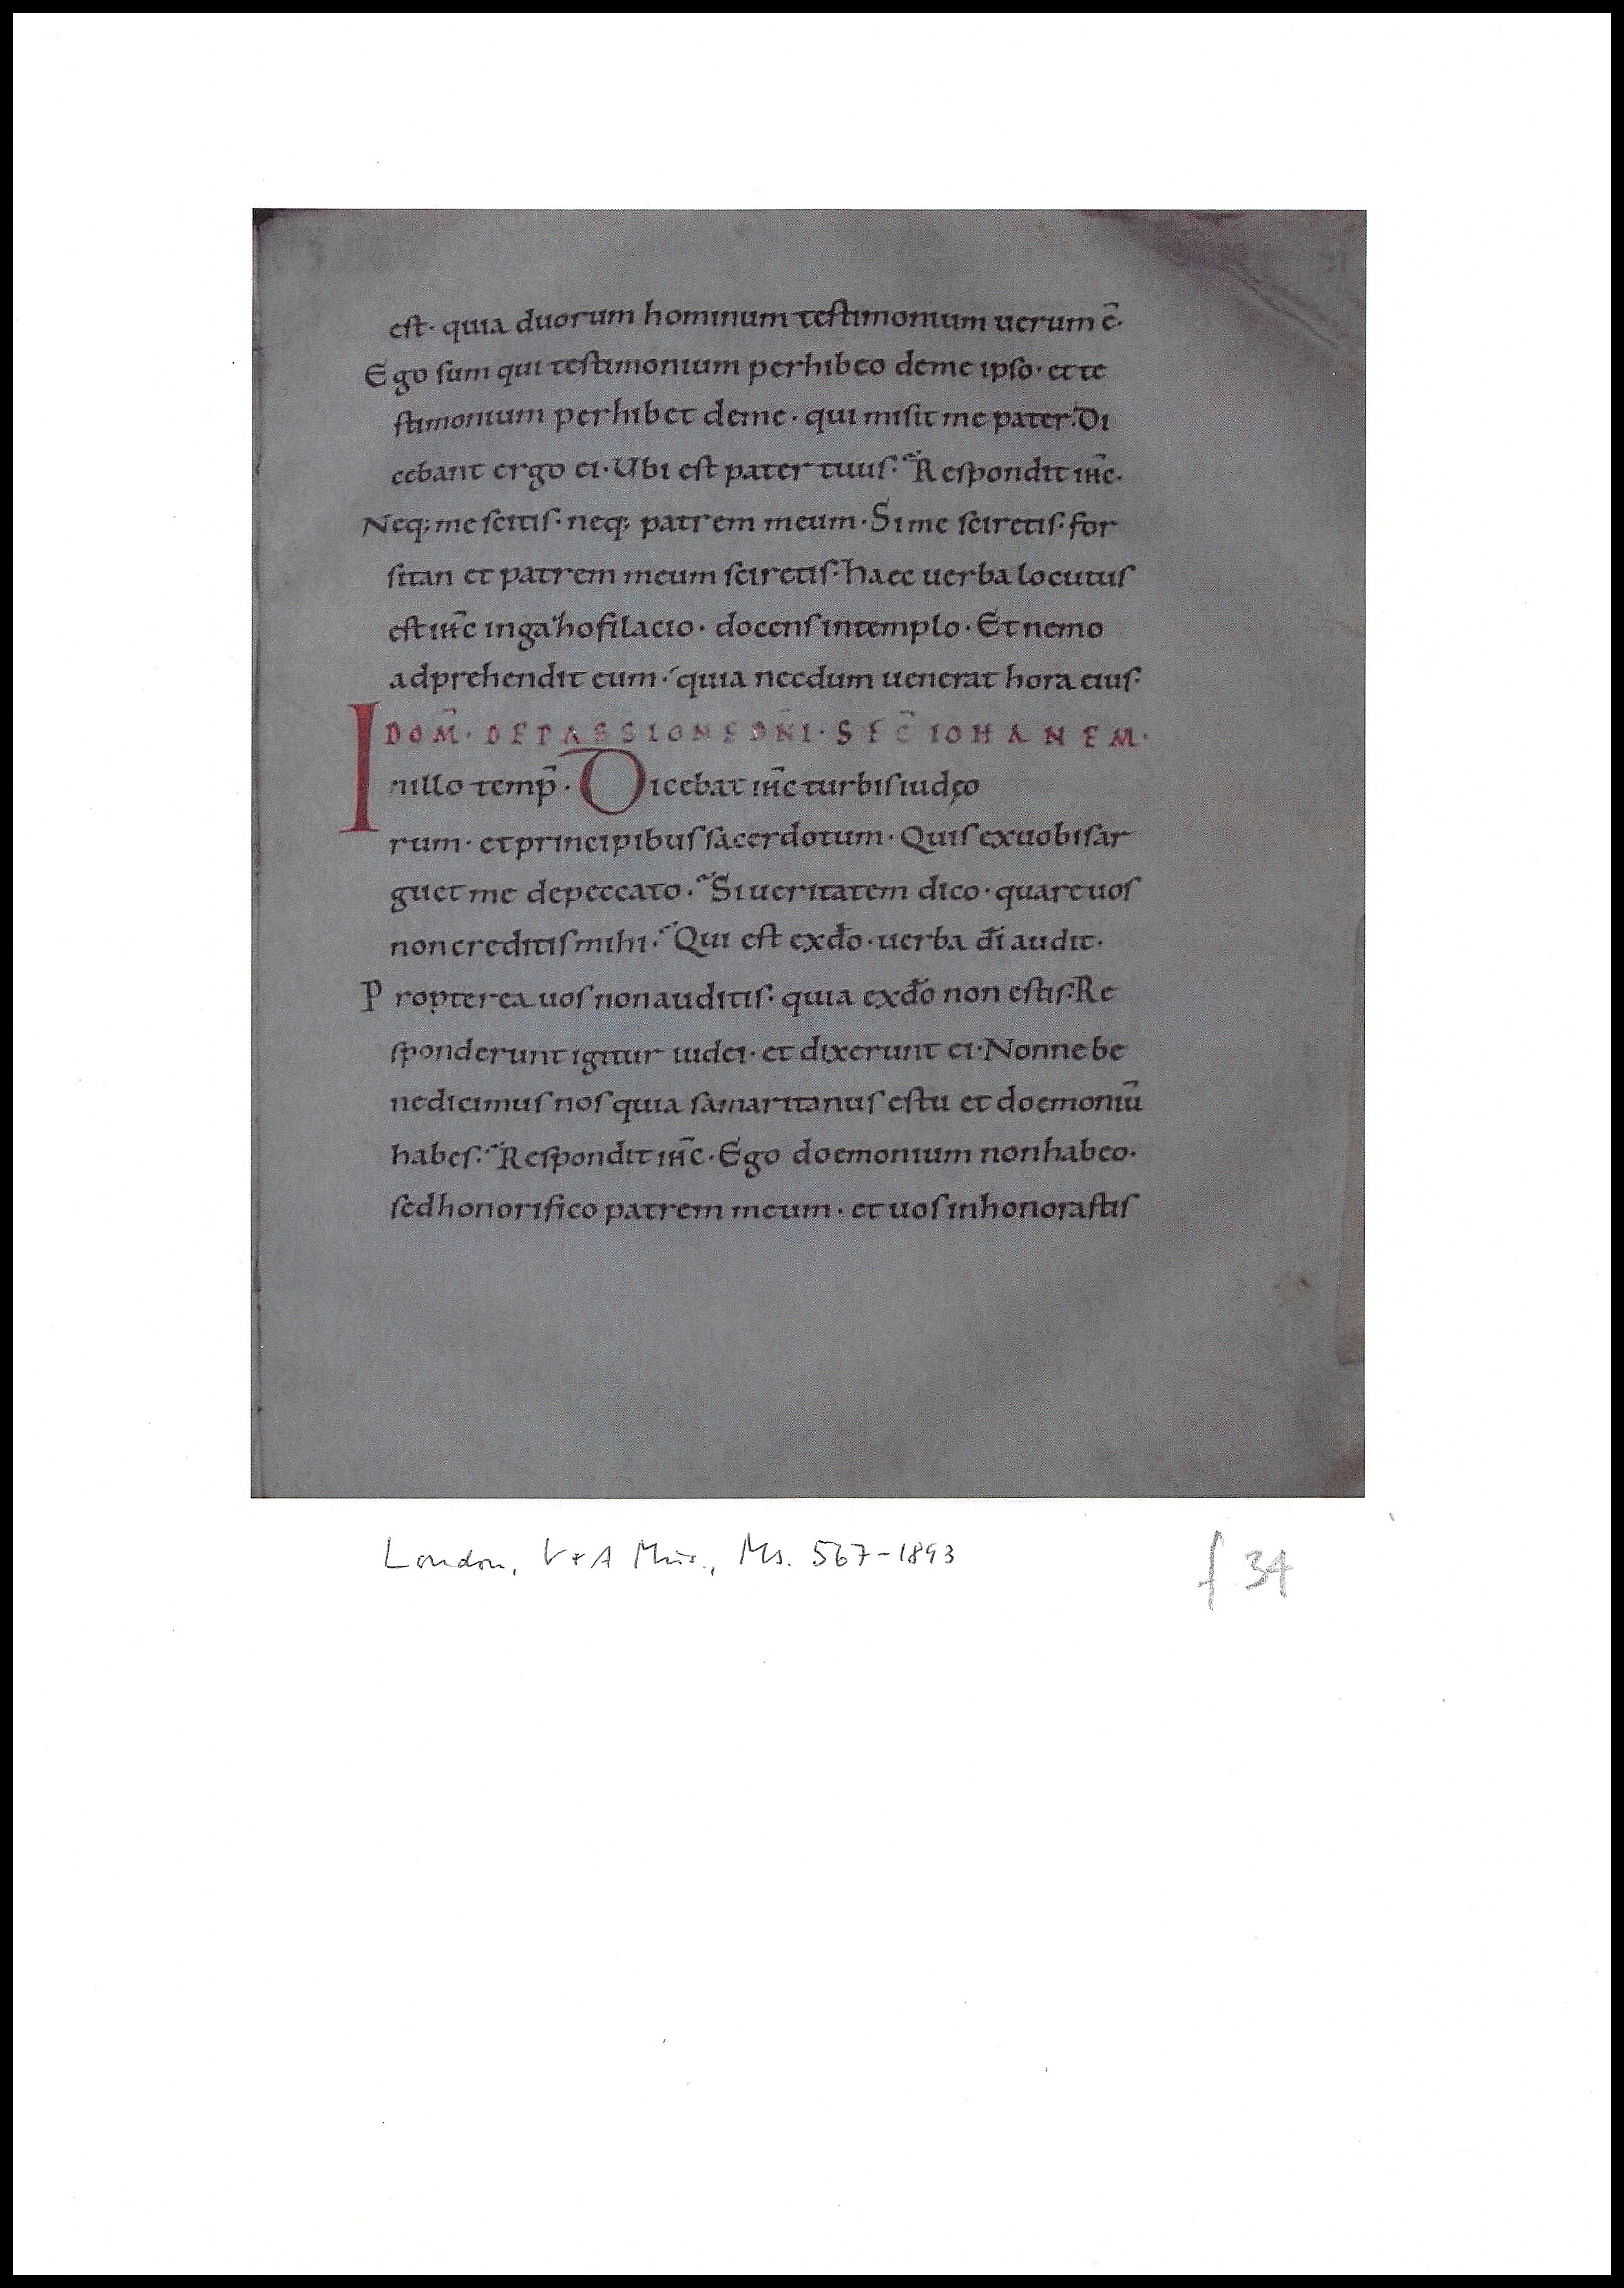 est· quia duorum hominum testimonium uerum ē·
Ego sum qui testimonium perhibeo deme ipso· et te
stimonium perhibet deme· qui misit me pater· Di
cebant ergo ei· Ubi est pater tuus· Respondit ihc̄·
Neq; me scitis· neq; patrem meum· Si me sciretis· for
sitan et patrem meum sciretis· haec uerba locutus
est ihc̄ in gazhofilacio· docens in templo· Et nemo
adprehendit eum· quia necdum uenerat hora eius·
DOM̄· DE PASSIONE DN̄I· SEC̄ IOHANEM·
In illo temp̄· Dicebat ihc̄ turbis iudęo
rum· et principibus sacerdotum· Quis ex uobis ar
guet me de peccato· Si ueritatem dico· quare uos
non creditis mihi· Qui est ex dō· uerba dī audit·
Propterea uos non auditis· quia ex dō non estis· Re
sponderunt igitur iudei· et dixerunt ei· Nonne be
nedicimus nos quia samaritanus es tu et doemoniū
habes· Respondit ihc̄· Ego doemonium non habeo·
sed honorifico patrem meum· et uos inhonorastis
London, V+A Mus., Ms. 567-1893
f 34